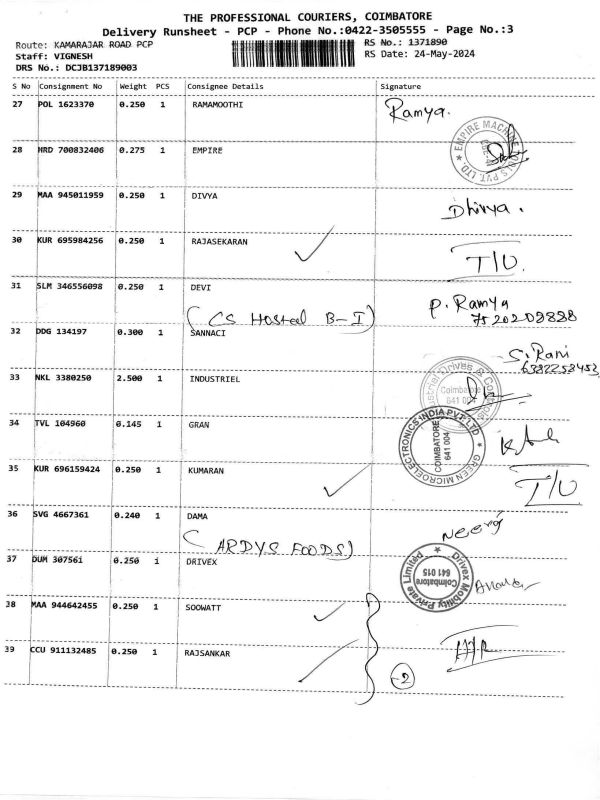 THE PROFESSIONAL COURIERS, COIMBATORE
Delivery Runsheet - PCP - Phone No.:0422-3505555 - Page No.:3
Route: KAMARAJAR ROAD PCP
RS No.: 1371890
Staff: VIGNESH
RS Date: 24-May-2024
DRS No.: DCJB137189003
S No Consignment No Weight PCS Consignee Details Signature
27 POL 1623370 0.250 1 RAMAMOOTHI Ramya.
28 HRD 700832406 0.275 1 EMPIRE
EMPIRE MACHINE TOOLS PVT. LTD.
29 MAA 945011959 0.250 1 DIVYA Dhivya.
30 KUR 695984256 0.250 1 RAJASEKARAN T/U.
31 SLM 346556098 0.250 1 DEVI P. Ramya
(CS Hostel B-I)
32 DDG 134197 0.300 1 SANNACI S. Rani
33 NKL 3380250 2.500 1 INDUSTRIEL
Industrial Drives & Controls
Coimbatore
641 004
34 TVL 104960 0.145 1 GRAN
GREEN MICROELECTRONICS INDIA PVT LTD
COIMBATORE
641 004
35 KUR 696159424 0.250 1 KUMARAN T/U
36 SVG 4667361 0.240 1 DAMA Neeraj
(ARDYS FOODS)
37 DUM 307561 0.250 1 DRIVEX
Drivex Mobility Private Limited
Coimbatore
641 015
38 MAA 944642455 0.250 1 SOOWATT
39 CCU 911132485 0.250 1 RAJSANKAR
-2